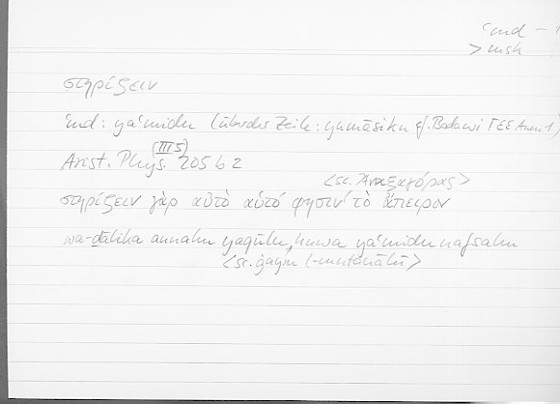 ʿmd – 1
> msk
στηρίξειν
ʿmd: yaʿmidu (über der Zeile: yumāsiku cf. Badawi I 255 Anm 1)
(III 5)
Arist. Phys. 205 b 2
<sc. Ἀναξαγόρας>
στηρίζειν γὰρ αὐτὸ αὑτό φησιν τὸ ἄπειρον
wa-ḏālika annahu yaqūlu, huwa yaʿmidu nafsahu
<sc. ġayru l-mutanāhī>